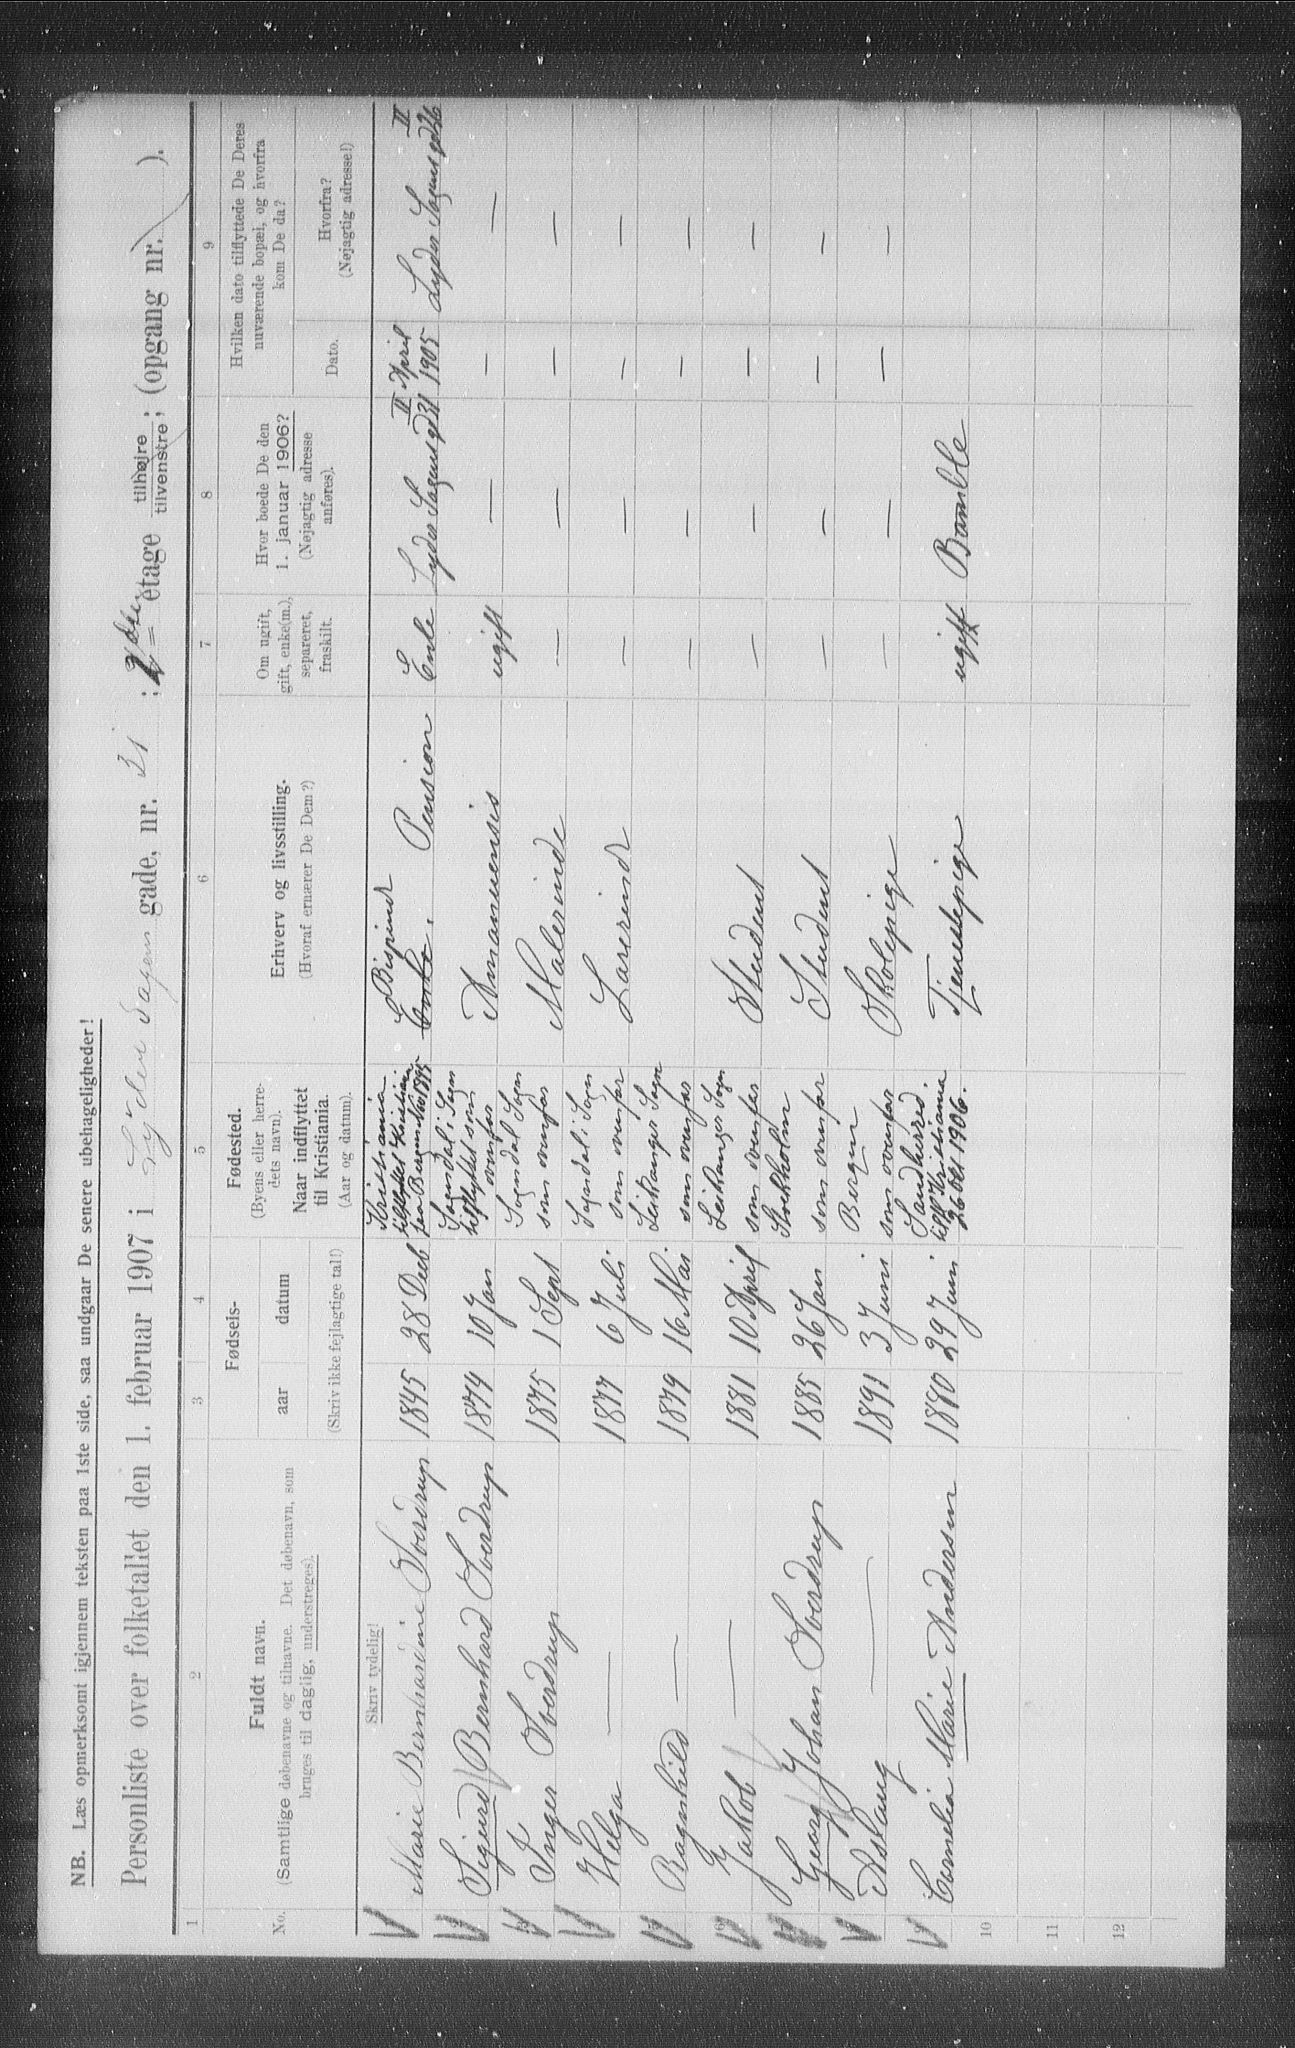 NB. Læs opmerksomt igjennem teksten paa 1ste side, saa undgaar De senere ubehageligheder!
Personliste over folketallet den 1. februar 1907 i Lyder Sagens gade, nr. 31 ; 2den etage tilhøjre tilvenstre; (opgang nr. ).
1 2 3 4 5 6 7 8 9
No.
Fuldt navn.
(Samtlige døbenavne og tilnavne. Det døbenavn, som
bruges til daglig, understreges).
Skriv tydelig!
Fødsels-
aar
datum
(Skriv ikke fejlagtige tal!)
Fødested.
(Byens eller herre-
dets navn).
Naar indflyttet
til Kristiania.
(Aar og datum).
Erhverv og livsstilling.
(Hvoraf ernærer De Dem?)
Om ugift,
gift, enke(m.),
separeret,
fraskilt.
Hvor boede De den
1. januar 1906?
(Nøjagtig adresse
anføres).
Hvilken dato tilflyttede De Deres
nuværende bopæl, og hvorfra
kom De da?
Dato.
Hvorfra?
(Nøjagtig adresse!)
Marie Bernhardine Sverdrup 1845 28 Decb Kristiania tilflyttet Kristiania fra Bergen Nov 1895 Bispinde Enke. Pension Enke Lyder Sagens gd 31 II April 1905 Lyder Sagens gd 26 II
Sigurd Bernhard Sverdrup 1874 10 Jan Sogndal i Sogn tilflyttet som ovenfor Amanuensis ugift — — —
Inger Sverdrup 1875 1 Sept Sogndal Sogn som ovenfor Malerinde — — — —
Helga — 1877 6 Juli Sogndal i Sogn som ovenfor Lærerinde — — — —
Ragnhild — 1879 16 Mai Leikanger Sogn som ovenfor — — — —
Jakob — 1881 10 April Leikanger Sogn som ovenfor Student — — — —
Georg Johan Sverdrup 1885 26 Jan Stockholm som ovenfor Student — — — —
Aslaug — 1891 3 Juni Bergen som ovenfor Skolepige — — — —
9 Cornelia Marie Andersen 1880 29 Juni Sandherred. till. Kristiania 26 Okt 1906. Tjenestepige ugift Bamble
10
11
12